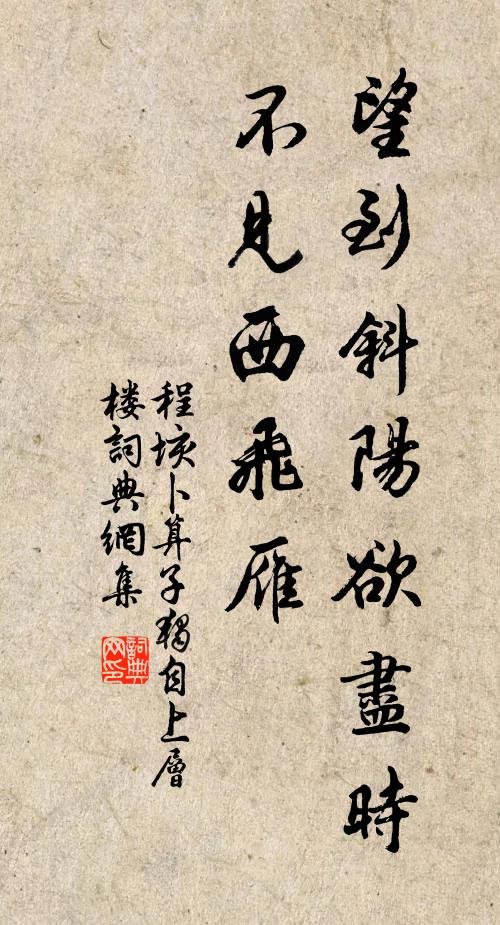 望到斜陽欲盡時
不見西飛雁
程垓卜算子獨自上層
楼詞典網集
詞典
网印